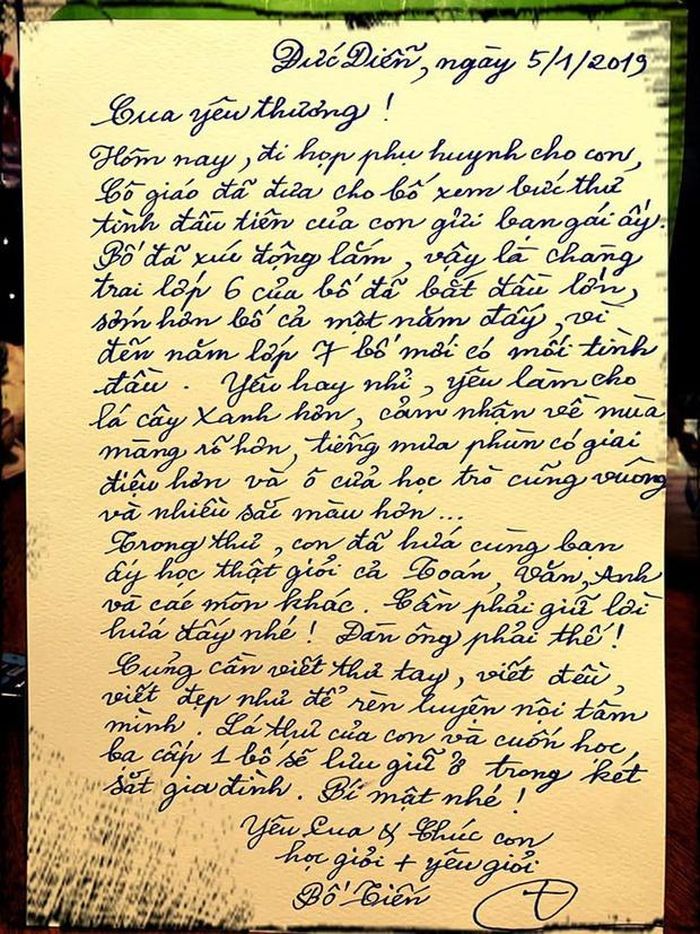 Đức Diễn, ngày 5/1/2019
Cua yêu thương !
Hôm nay, đi họp phụ huynh cho con,
Cô giáo đã đưa cho bố xem bức thư
tình đầu tiên của con gửi bạn gái ấy.
Bố đã xúc động lắm, vậy là chàng
trai lớp 6 của bố đã bắt đầu lớn,
sớm hơn bố cả một năm đấy, vì
đến năm lớp 7 bố mới có mối tình
đầu. Yêu hay nhỉ, yêu làm cho
lá cây xanh hơn, cảm nhận về mùa
màng rõ hơn, tiếng mưa phùn có giai
điệu hơn và ô cửa học trò cũng vuông
và nhiều sắc màu hơn...
Trong thư, con đã hứa cùng bạn
ấy học thật giỏi cả Toán, Văn, Anh
và các môn khác. Cần phải giữ lời
hứa đấy nhé! Đàn ông phải thế!
Cũng cần viết thư tay, viết đều,
viết đẹp như để rèn luyện nội tâm
mình. Lá thư của con và cuốn học
bạ cấp 1 bố sẽ lưu giữ ở trong két
sắt gia đình. Bí mật nhé!
Yêu Cua & Chúc con
học giỏi + yêu giỏi
Bố Tiến